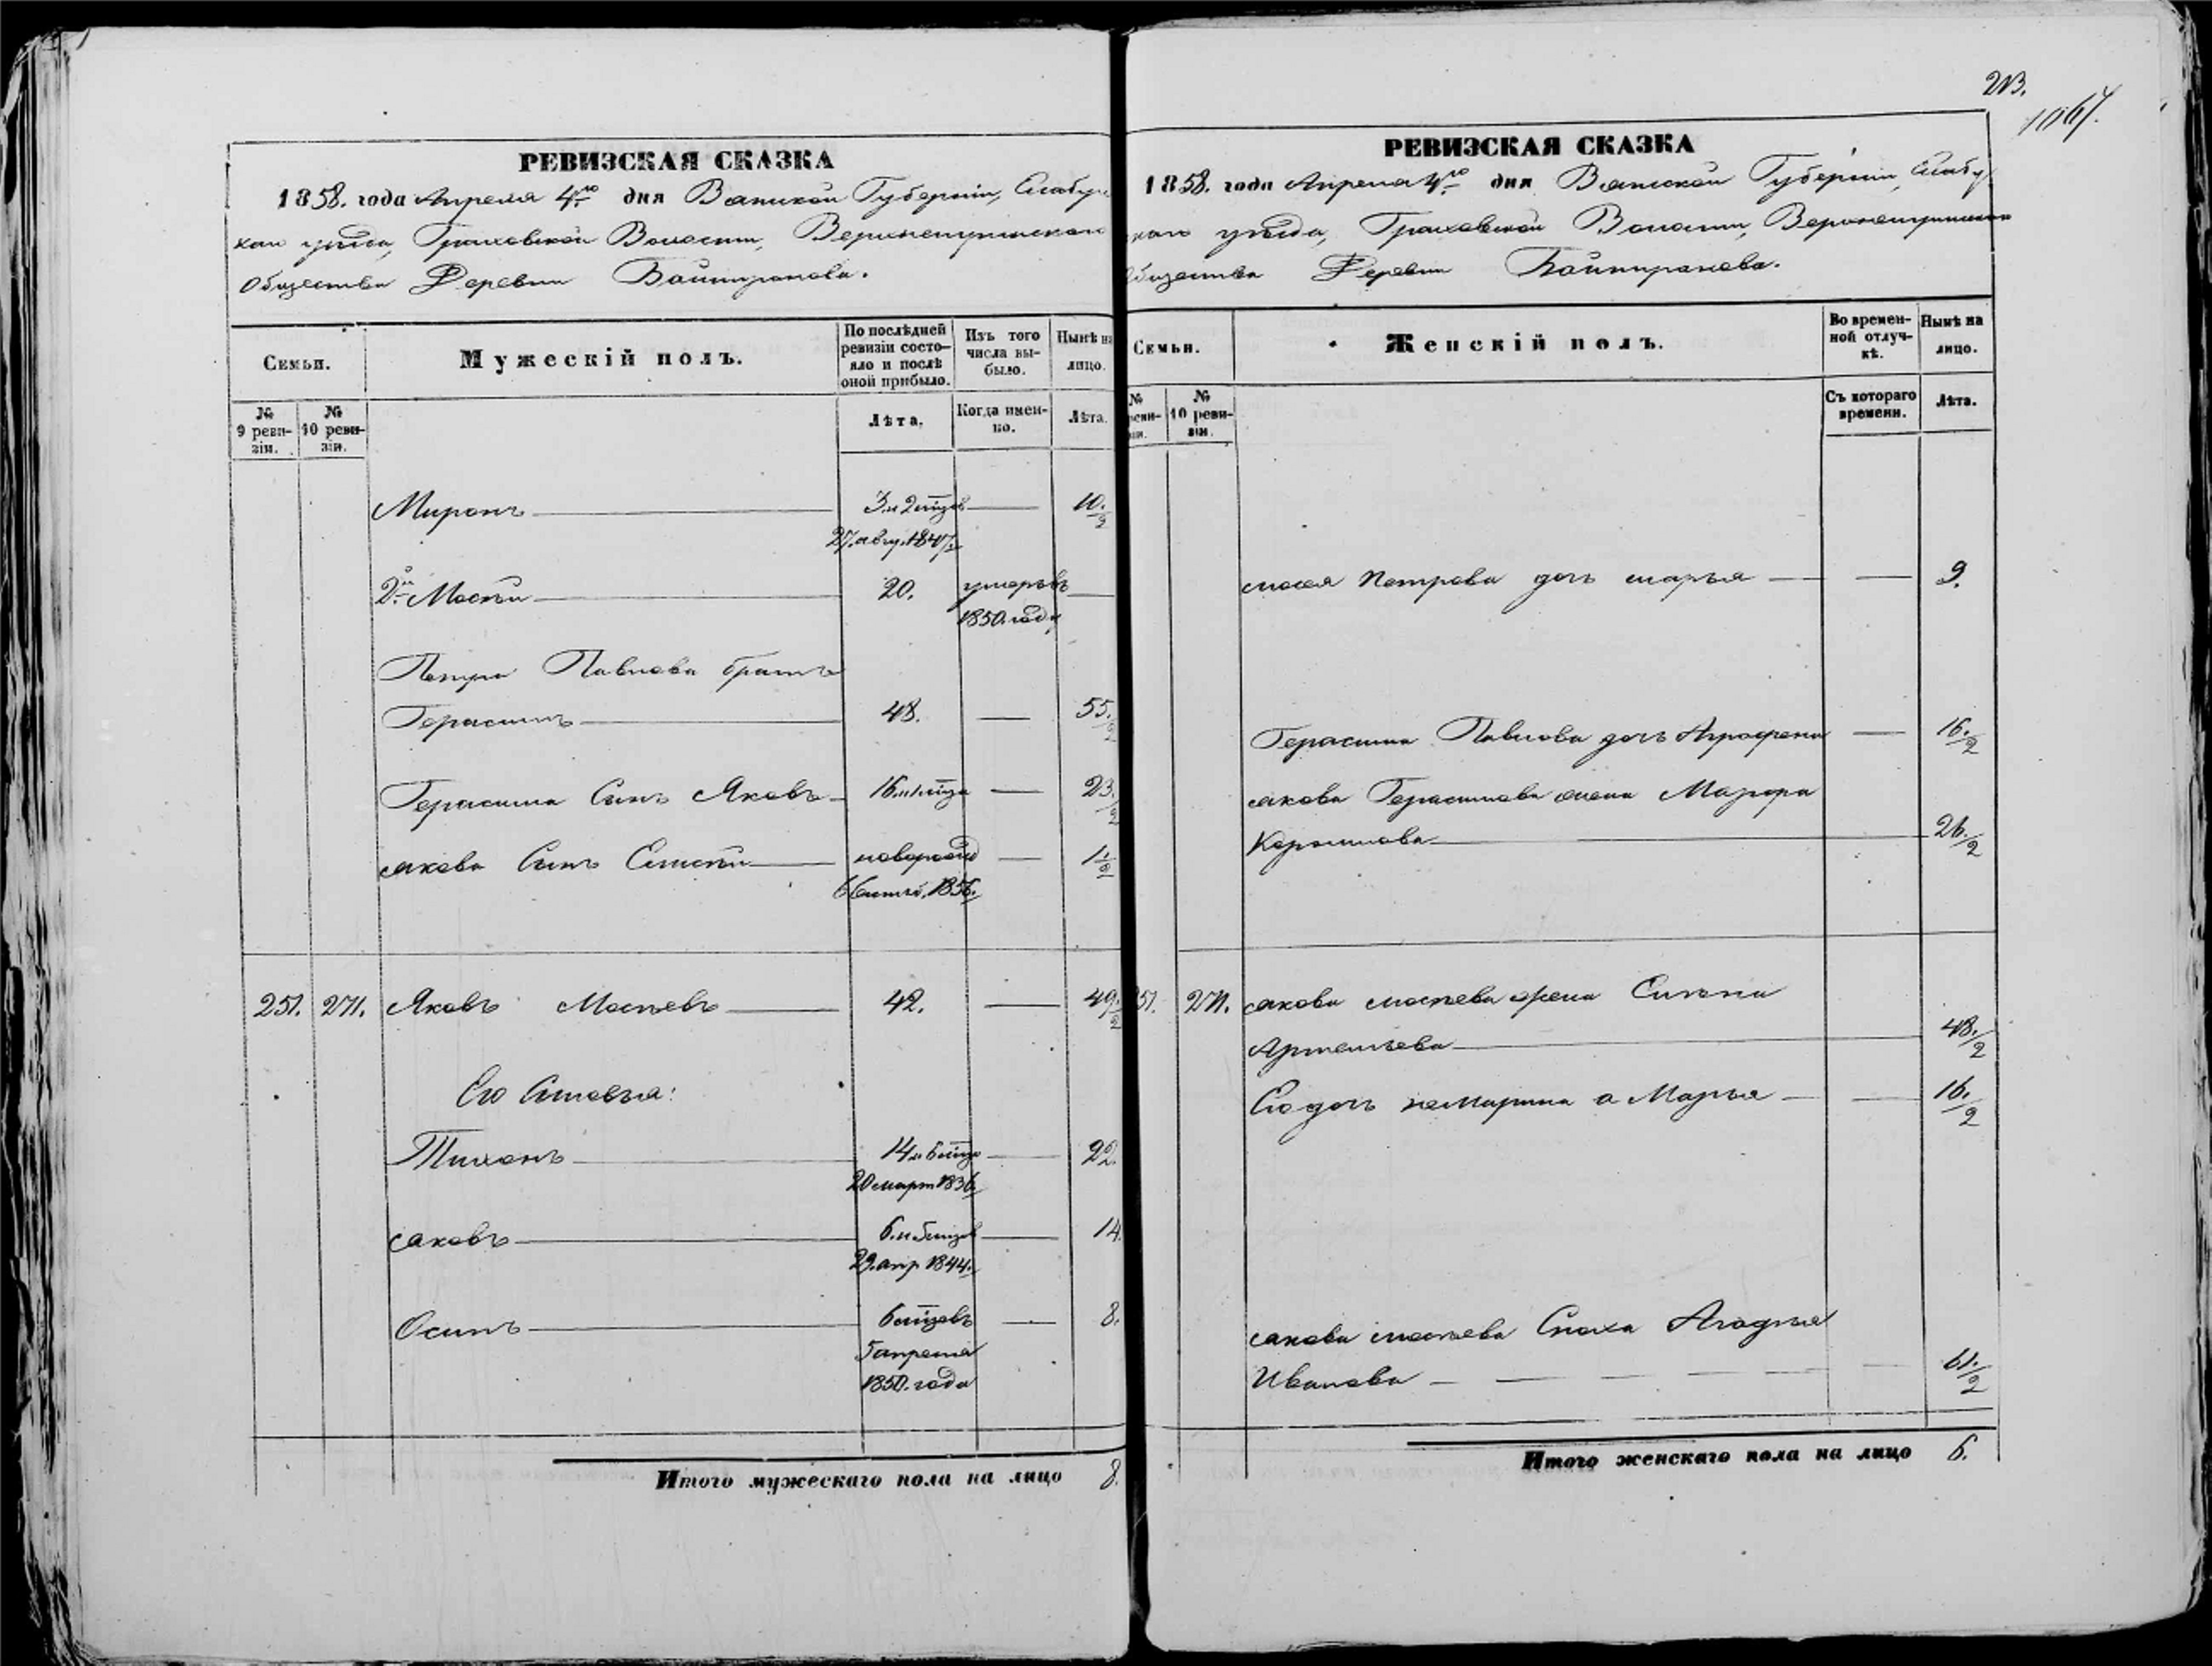 213.
1067.
РЕВИЗСКАЯ СКАЗКА
1858. года Апреля 4го дня Вятской Губерніи, Елабуж
каго уѣзда, Граховской Волости,
Общества Деревни Байтуганова.
Семьи.
Мужескій полъ.
По послѣдней ревизіи состояло и послѣ оной прибыло.
Изъ того числа выбыло.
Нынѣ на лицо.
№ 9 ревизіи.
№ 10 ревизіи.
Лѣта.
Когда именно.
Лѣта.
Миронъ 3. и 2 мѣцов 10. 1/2
27. авгу. 1847
2й Мосѣй 20. умеръ въ
1850. году
Петра Павлова братъ
Герасимъ 48. 55. 1/2
Герасима Сынъ Яковъ 16. и 1 мѣца 23. 1/2
Якова Сынъ Елисѣй новорожд 1 1/2
1856.
251. 271. Яковъ Мосѣевъ 42. 49. 1/2
Его Сыновья:
Тихонъ 14 и 6 мѣцо 22.
20 март 1836
Яковъ 6. и 5 мѣцов 14.
29. апр 1844.
Осипъ 6 мѣцовъ 8.
5 апреля
1850. года
Итого мужескаго пола на лицо 8.
РЕВИЗСКАЯ СКАЗКА
1858. года Апреля 4го дня Вятской Губерніи, Елабу
каго уѣзда, Граховской Волости,
Общества Деревни Байтуганова.
Семьи.
Женскій полъ.
Во временной отлучкѣ.
Нынѣ на лицо.
№ ревизіи.
№ 10 ревизіи.
Съ котораго времени.
Лѣта.
Петрова дочь Марья 9.
Герасима Павлова дочь Аграфена 16. 1/2
Якова Герасимова жена Марфа
26. 1/2
251. 271. Якова Мосѣева жена
Артемьева 48. 1/2
Его дочь не Марина а Марья 16. 1/2
Якова Мосѣева Сноха
Иванова 61. 1/2
Итого женскаго пола на лицо 6.